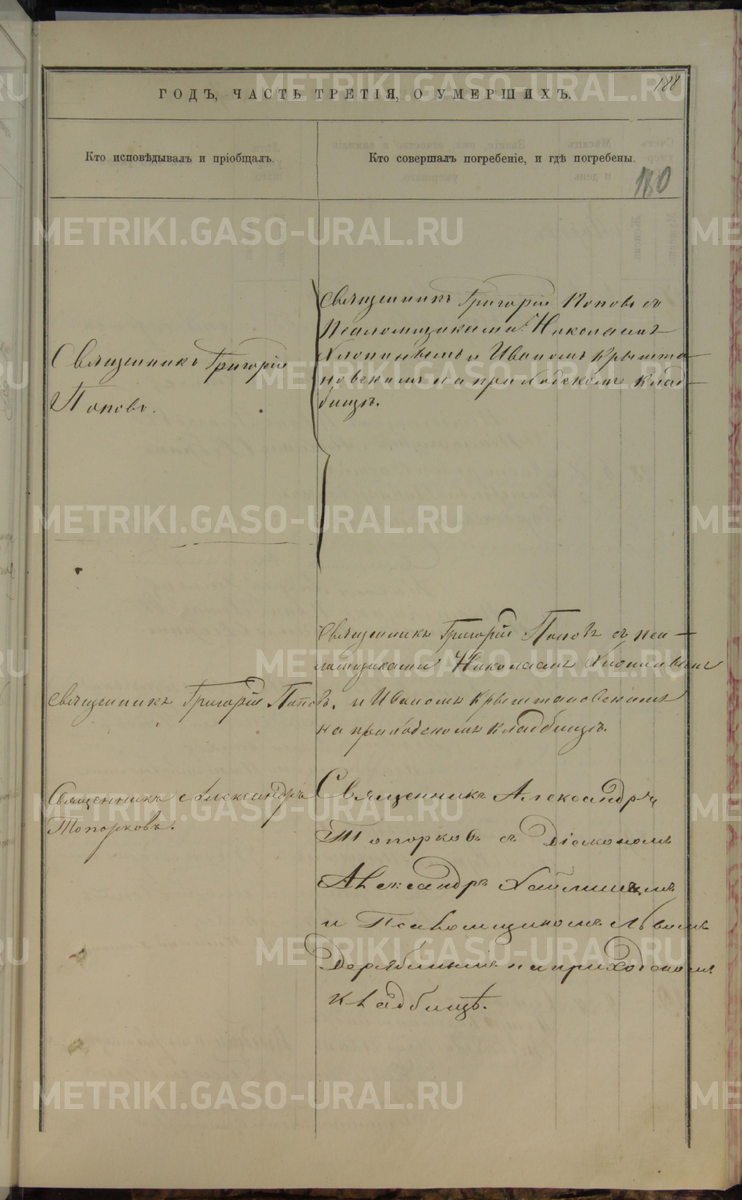 188
ГОДЪ, ЧАСТЬ ТРЕТІЯ, О УМЕРШИХЪ.
Кто исповѣдывалъ и пріобщалъ.
Кто совершалъ погребеніе, и гдѣ погребены.
180
Священникъ Григорій
Поповъ.
Священникъ Григорій Поповъ съ
Псаломщиками Николаемъ
и Иваномъ Крышта-
новскимъ на приходскомъ клад-
бищѣ.
Священникъ Григорій Поповъ.
Священникъ Григорій Поповъ съ пса-
ломщиками Николаемъ
и Иваномъ Крыштановскимъ
на приходскомъ кладбищѣ.
Священникъ Александръ
Топорковъ.
Священникъ Александръ
Топорковъ съ Діакономъ
Александръ
и Псаломщикомъ Львомъ
Дерябинымъ на приходскомъ
кладбищѣ.
METRIKI.GASO-URAL.RU